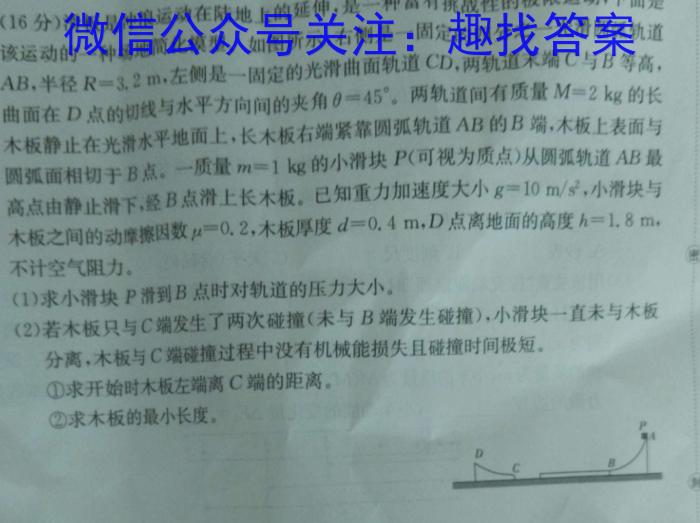 (16分)运动在陆地上的延伸,是一种富有挑战性的
微信公众号关注：趣找答案
该运动的一种
AB,半径R=3.2 m,左侧是一固定的光滑曲面轨道CD,两轨道末端C与B等高,
曲面在D点的切线与水平方向间的夹角θ=45°。两轨道间有质量M=2 kg的长
木板静止在光滑水平地面上,长木板右端紧靠圆弧轨道AB的B端,木板上表面与
圆弧面相切于B点。一质量m=1 kg的小滑块P(可视为质点)从圆弧轨道AB最
高点由静止滑下,经B点滑上长木板。已知重力加速度大小g=10 m/s²,小滑块与
木板之间的动摩擦因数μ=0.2,木板厚度d=0.4 m,D点离地面的高度h=1.8 m,
不计空气阻力。
(1)求小滑块P滑到B点时对轨道的压力大小。
(2)若木板只与C端发生了两次碰撞(未与B端发生碰撞),小滑块一直未与木板
分离,木板与C端碰撞过程中没有机械能损失且碰撞时间极短。
①求开始时木板左端离C端的距离。
②求木板的最小长度。
P
A
D
C
B